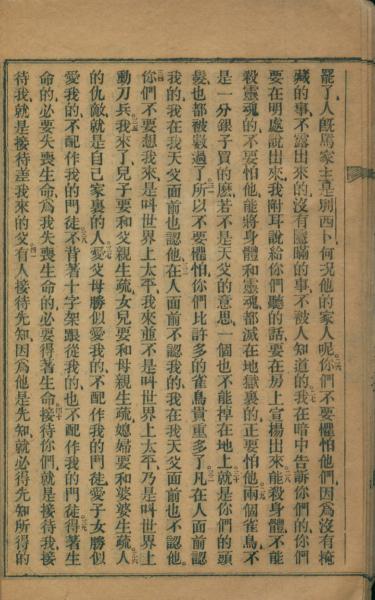 罷了人旣罵家主是別西卜何況他的家人呢你們不要懼怕他們因爲沒有掩
藏的事不露出來的沒有隱瞞的事不被人知道的我在暗中告訴你們的你們
要在明處說出來我附耳說給你們聽的話要在房上宣揚出來能殺身體不能
殺靈魂的不要怕他能將身體和靈魂都滅在地獄裏的正要怕他兩個雀鳥不
是一分銀子買的麽若不是天父的意思一個也不能掉在地上就是你們的頭
髮也都被數過了所以不要懼怕你們比許多的雀鳥貴重多了凡在人面前認
我的我在我天父面前也認他在人面前不認我的我在我天父面前也不認他
你們不要想我來是叫世界上太平我來並不是叫世界上太平乃是叫世界上
動刀兵我來了兒子要和父親生疏女兒要和母親生疏媳婦要和婆婆生疏人
的仇敵就是自己家裏的人愛父母勝似愛我的不配作我的門徒愛子女勝似
愛我的不配作我的門徒不背著十字架跟從我的也不配作我的門徒得著生
命的必要失喪生命爲我失喪生命的必要得著生命接待你們就是接待我接
待我就是接待差我來的父有人接待先知因爲他是先知就必得先知所得的